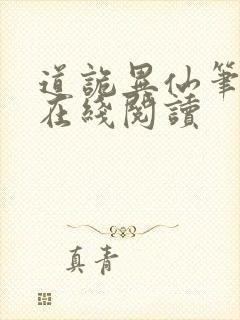 道詭異仙筆
在綫閱讀
真青